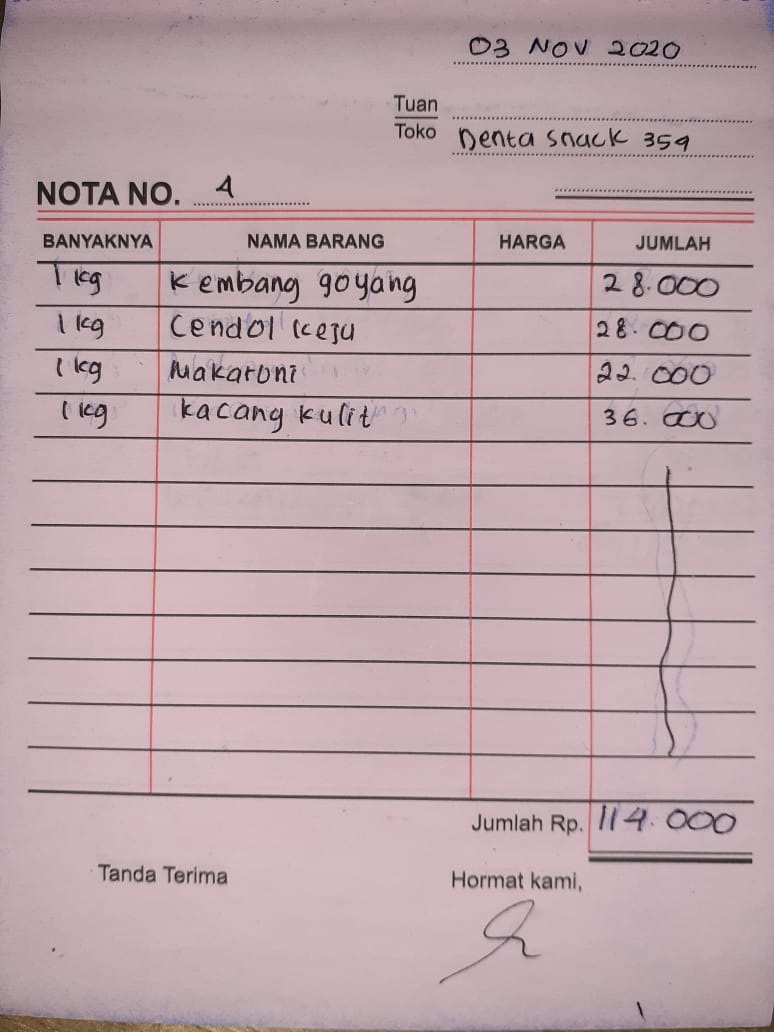 03 NOV 2020
Tuan
Toko Denta snack 354
NOTA NO. 4
BANYAKNYA NAMA BARANG HARGA JUMLAH
1 kg Kembang goyang 28.000
1 kg Cendol keju 28.000
1 kg Makaroni 22.000
1 kg Kacang kulit 36.000
Jumlah Rp. 114.000
Tanda Terima Hormat kami,